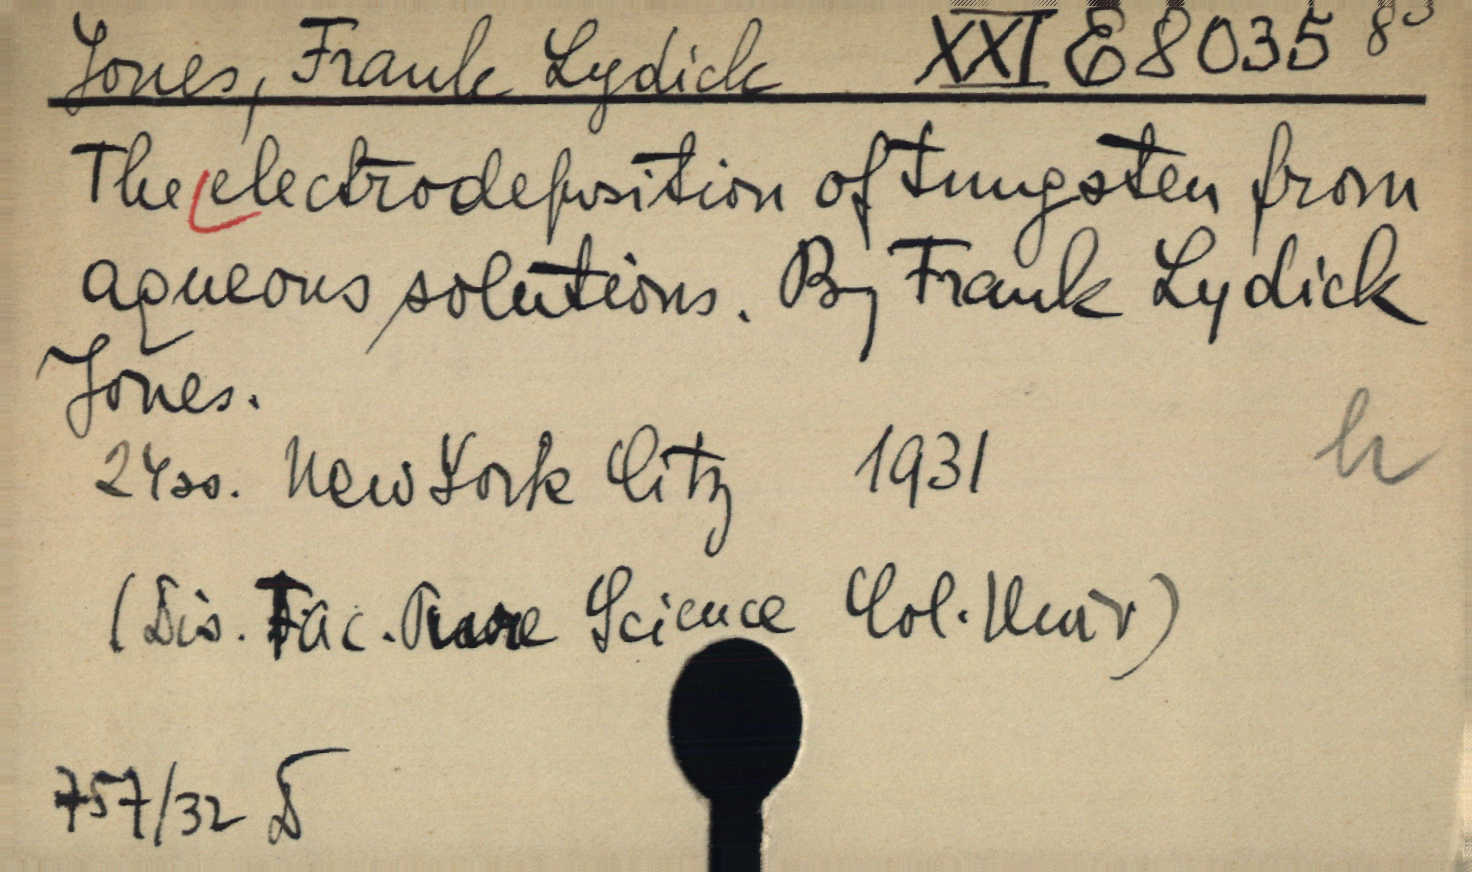 Jones, Frank Lydick XXI E 8035 8°
The electrodeposition of tungsten from
aqueous solutions. By Frank Lydick
Jones.
24 ss. New York City 1931
h
(Dis. Fac. Pure Science Col. Univ)
757/32 D